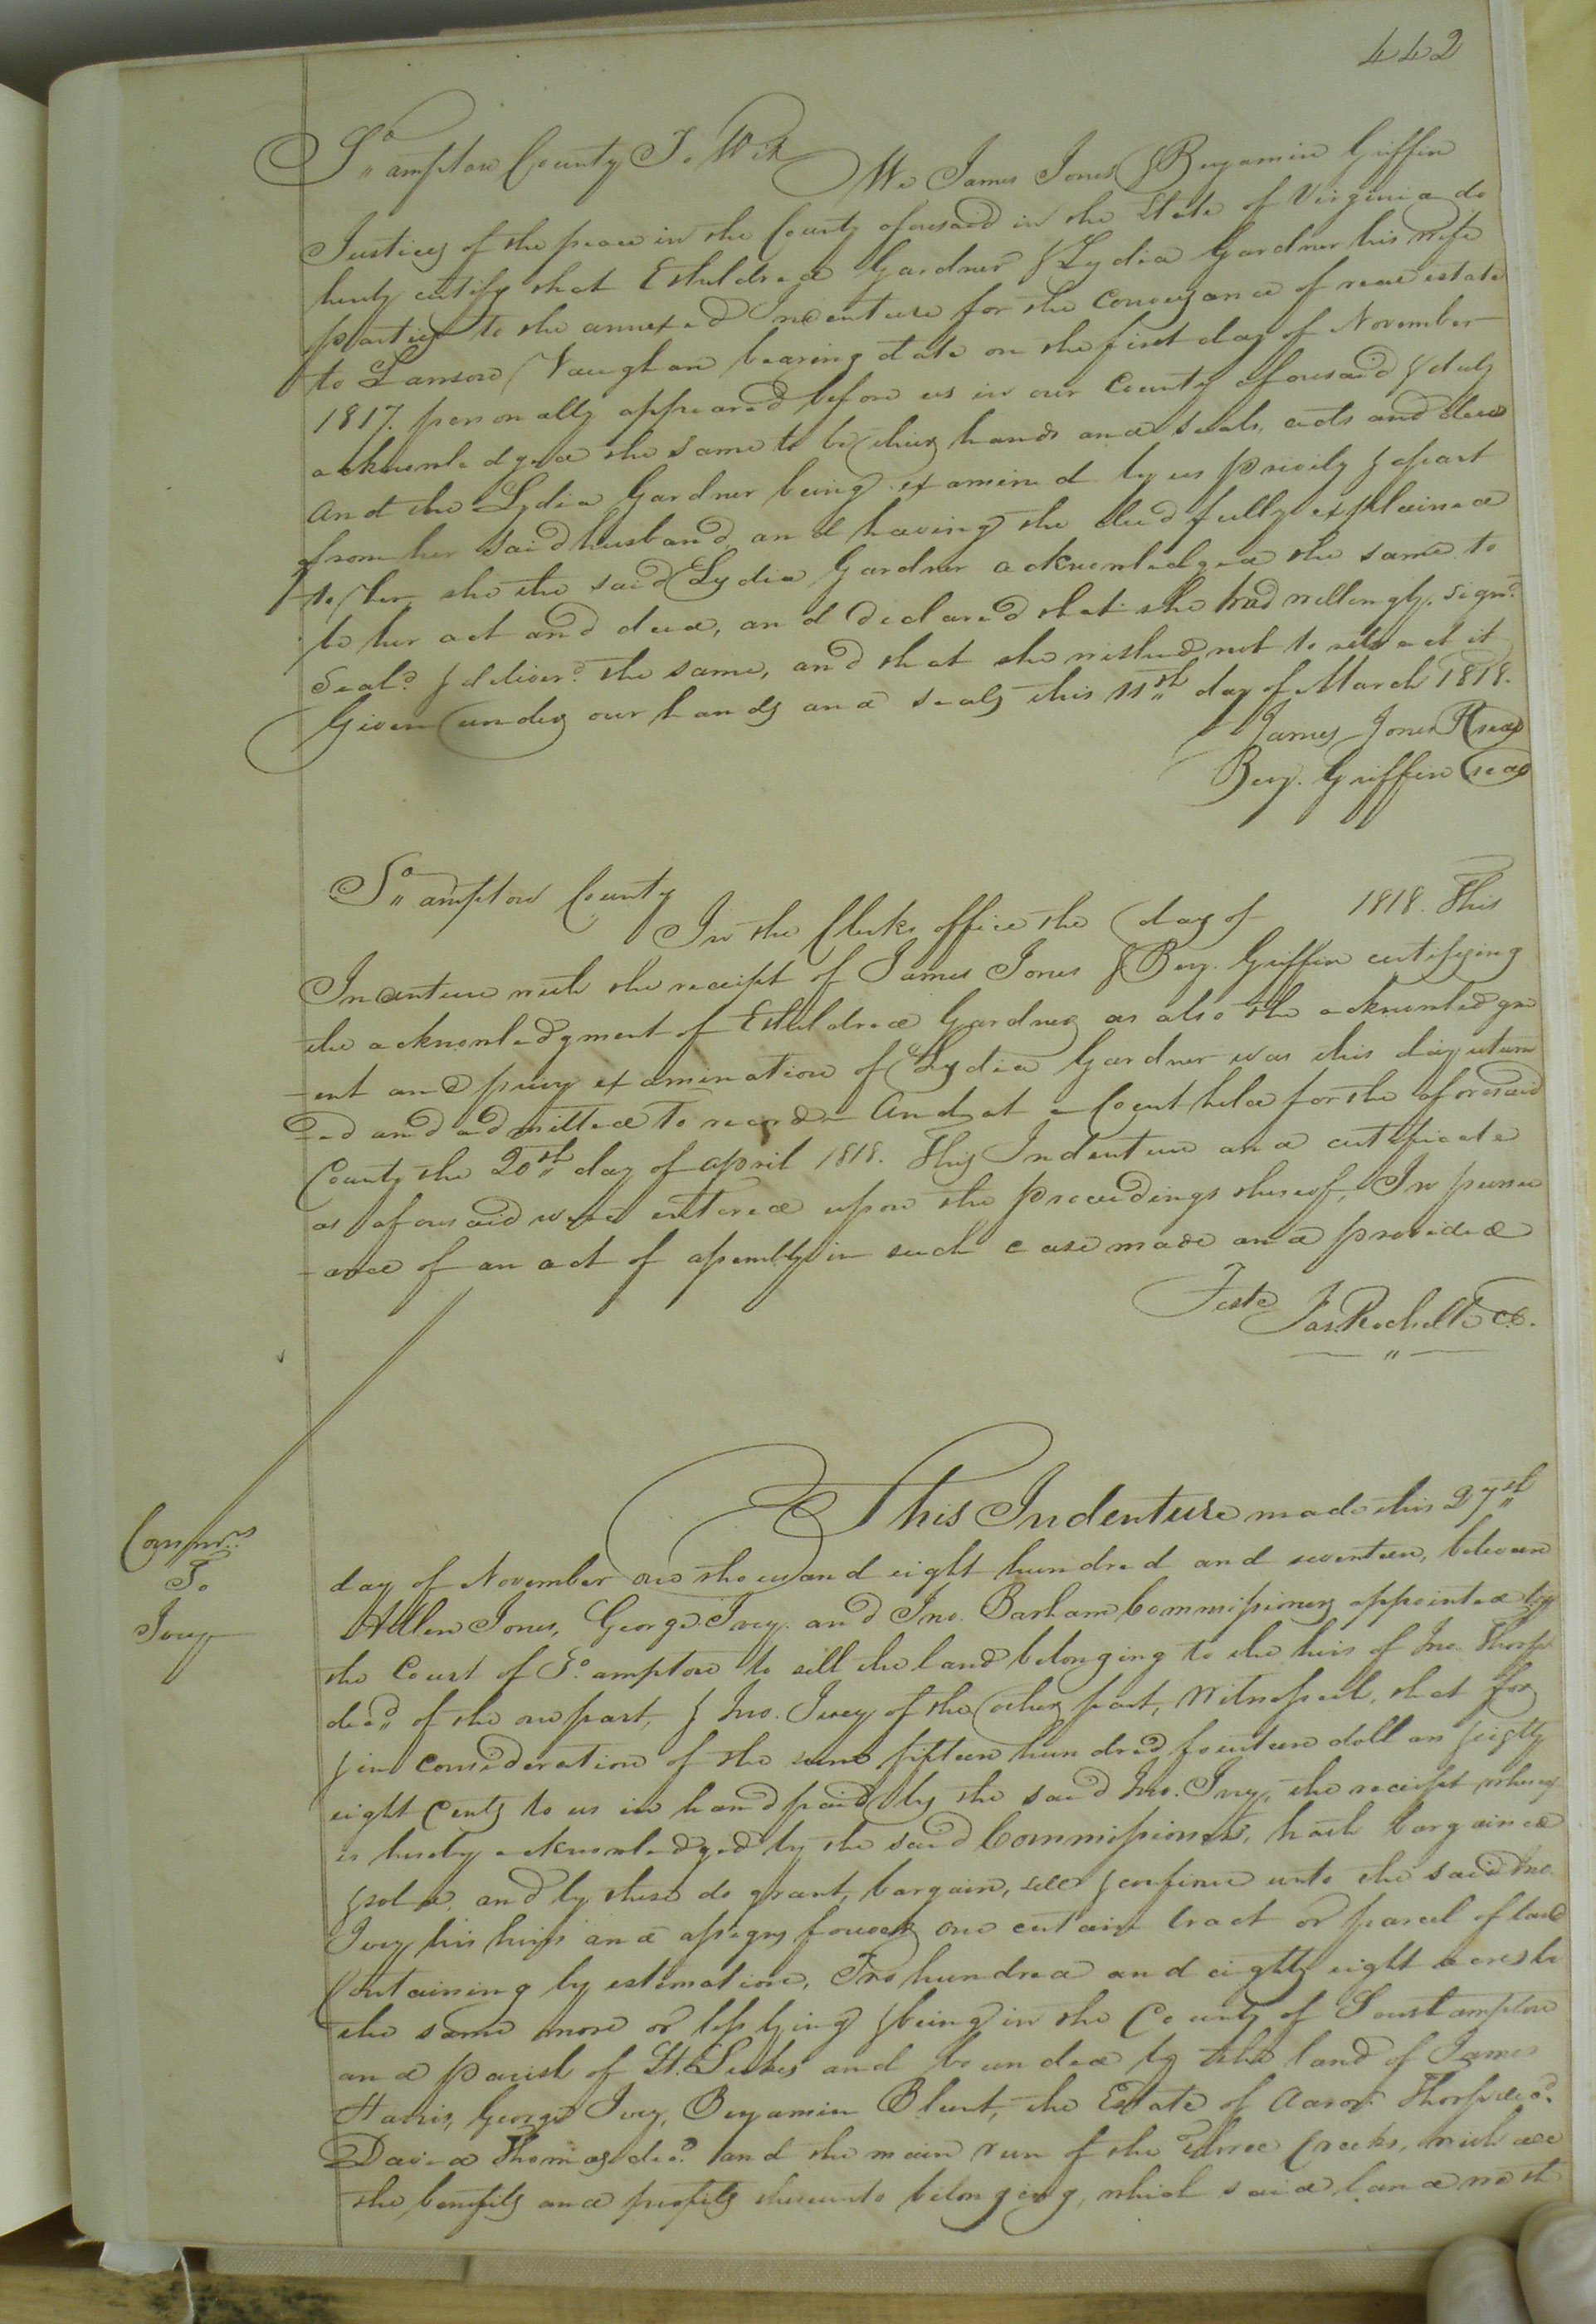 442
So,, ampton County To Wit
We James Jones & Benjamin Griffin
Justices of the peace in the County aforesaid in the State of Virginia do
hereby certify that Etheldred Gardner & Lydia Gardner his wife
parties to the annexed Indenture for the Conveyance of real estate
to Lanson Vaughan bearing date on the first day of November
1817. personally appeared before us in our County aforesaid & duly
acknowledged the same to be their hands and seals, acts and deed
And the Lydia Gardner being examined by us privily & apart
from her said husband, and having the deed fully explained
to her, she the said Lydia Gardner acknowledged the same to
be her act and deed, and declared that she had willingly, sign.d
Seal.d & deliver.d the same, and that she wished not to retract it
Given under our hands and seals this 11th day of March 1818.
James Jones seal
Benj. Griffin seal
So,, ampton County
In the Clerks office the day of 1818. This
Indenture with the receipt of James Jones & Benj. Griffin certifying
the acknowledgment of Etheldred Gardner as also the acknowledgm
-ent and privy examination of Lydia Gardner was this day return
-ed and admitted To record And at a Court held for the aforesaid
County the 20th day of April 1818. This Indenture and certificate
as aforesaid were entered upon the proceedings thereof, In pursu
-ance of an act of assembly in such case made and provided
Teste
Jas. Rochelle CC.
Commrs.
To
Ivey
This Indenture made this 27th
day of November one thousand eight hundred and seventeen, between
Allen Jones, George Ivey. and Jno. Barham Commissioners appointed by
the Court of So. ampton to sell the land belonging to the heirs of Jno. Thorp
decd,, of the one part, & Jno. Ivey of the other part, Witnesseth, that for
& in consideration of the sum fifteen hundred fourteen dollars & eighty
eight Cents to us in hand paid by the said Jno. Ivey, the receipt whereof
is hereby acknowledged by the said Commissioners, hath bargained
& sold, and by these do grant, bargain, sell & confirm unto the said Jno.
Ivey his heirs and assigns forever one certain tract or parcel of land
Containing by estimation, Two hundred and eighty eight acres be
the same more or less lying & being in the County of Southampton
and parish of St. Lukes and bounded by the land of James
Harris, George Ivey, Benjamin Blunt, the Estate of Aaron Thorp decd.
David Thomas decd. and the main run of the three Creeks, with all
the benefits and profits thereunto belonging, which said land